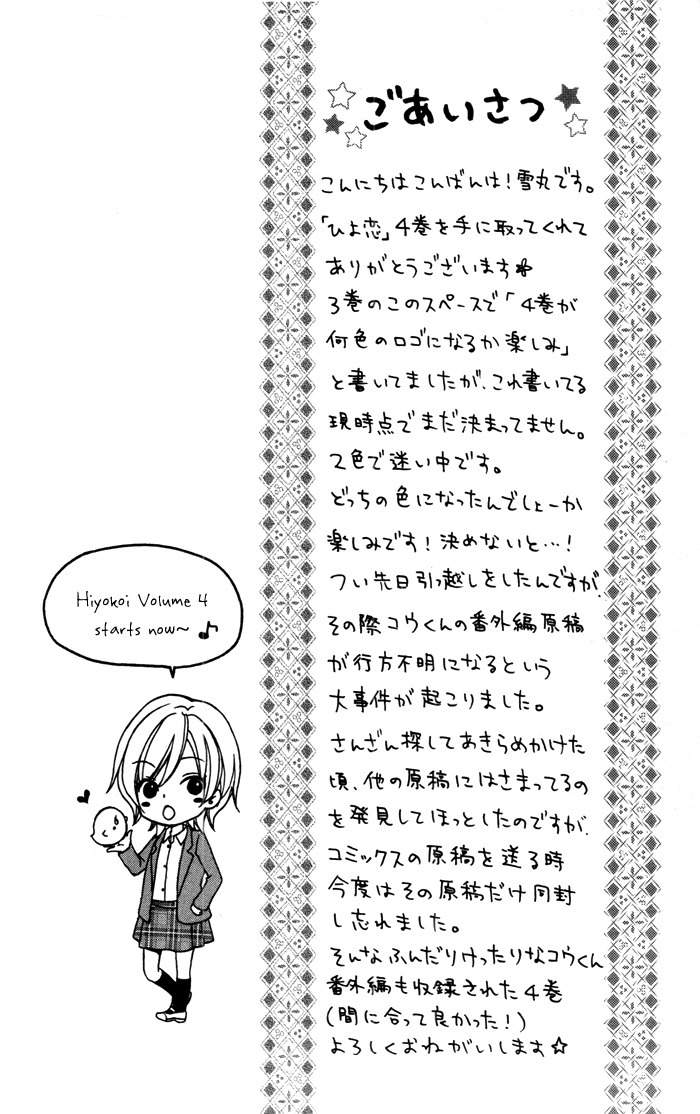 ごあいさつ
こんにちはこんばんは!雪丸です。
「ひよ恋」4巻を手に取ってくれて
ありがとうございます
3巻のこのスペースで「4巻が
何色のロゴになるか楽しみ」
と書いてましたが、これ書いてる
現時点でまだ決まってません。
2色で迷い中です。
どっちの色になったんでしょーか
楽しみです!決めないと…!
つい先日引っ越しをしたんですが、
その際コウくんの番外編原稿
が行方不明になるという
大事件が起こりました。
さんざん探してあきらめかけた
頃、他の原稿にはさまってるの
を発見してほっとしたのですが、
コミックスの原稿を送る時
今度はその原稿だけ同封
し忘れました。
そんなふんだりけったりなコウくん
番外編も収録された4巻
(間に合って良かった!)
よろしくおねがいします☆
Hiyokoi Volume 4
starts now~ ♪